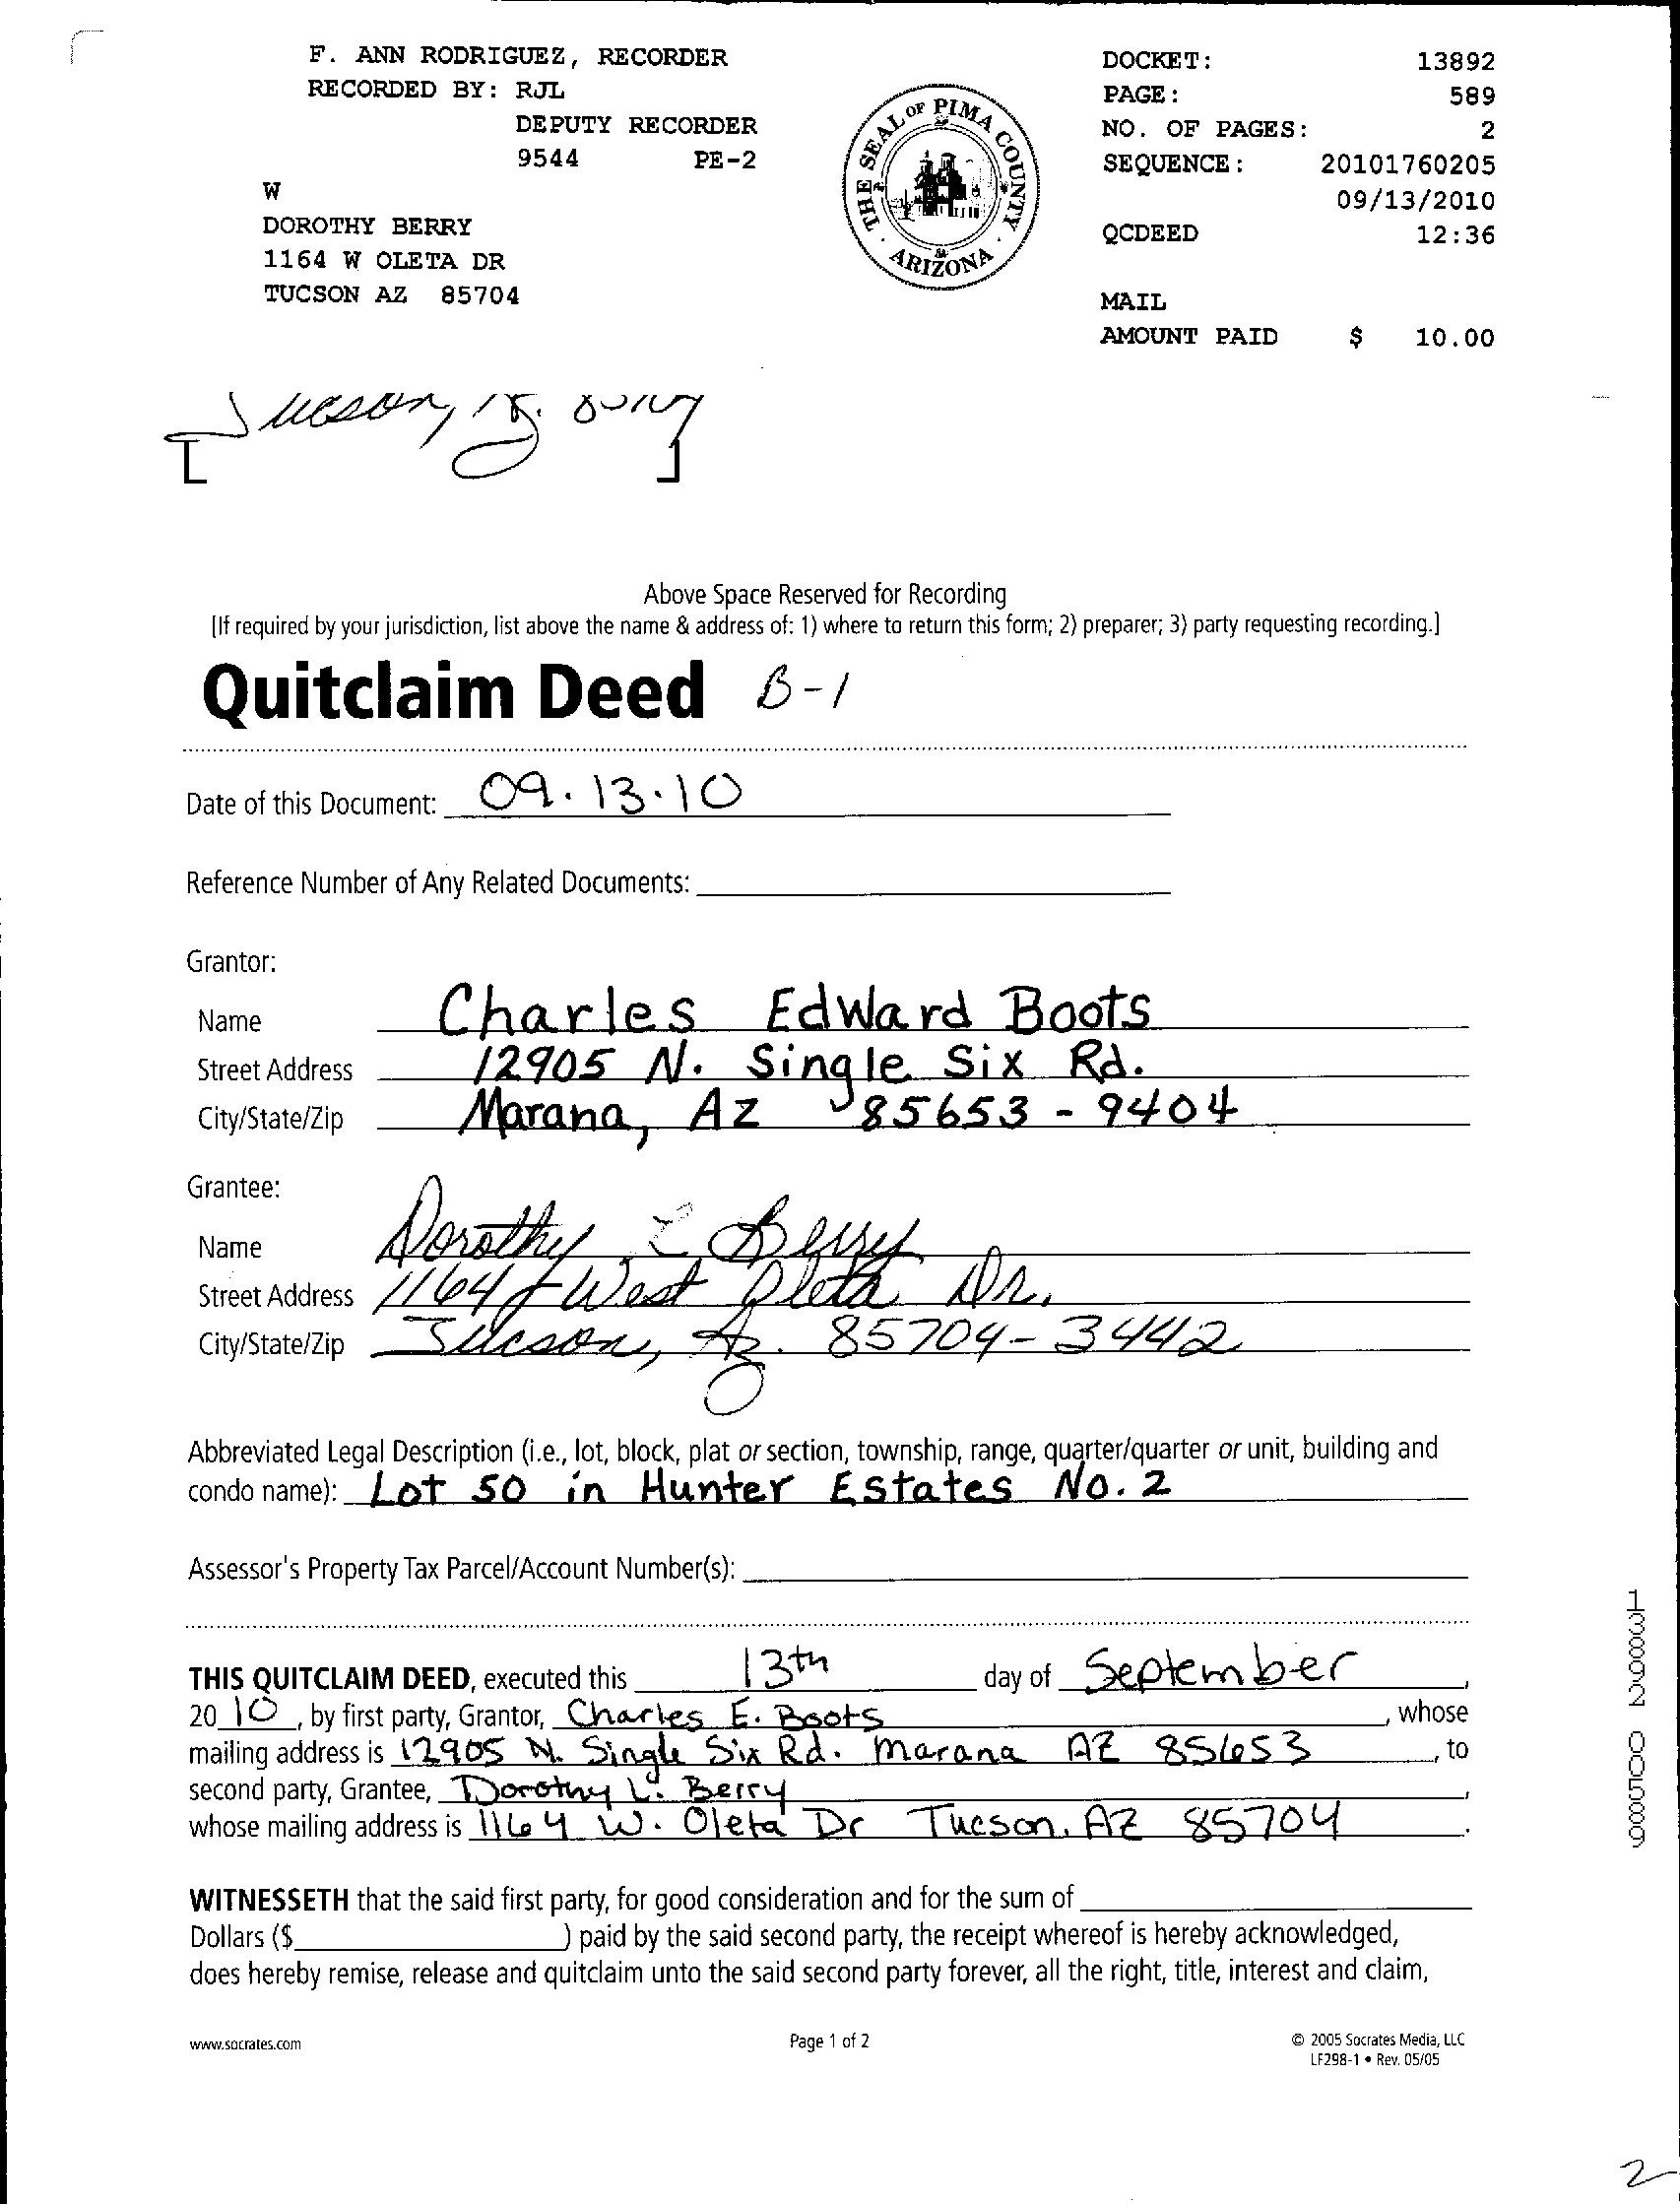 F. ANN RODRIGUEZ, RECORDER
RECORDED BY: RJL
DEPUTY RECORDER
9544 PE-2
W
DOROTHY BERRY
1164 W OLETA DR
TUCSON AZ 85704
THE SEAL OF PIMA COUNTY
ARIZONA
DOCKET: 13892
PAGE: 589
NO. OF PAGES: 2
SEQUENCE: 20101760205
09/13/2010
QCDEED 12:36
MAIL
AMOUNT PAID $ 10.00
Tucson, Az.
Above Space Reserved for Recording
[If required by your jurisdiction, list above the name & address of: 1) where to return this form; 2) preparer; 3) party requesting recording.]
Quitclaim Deed B-1
Date of this Document: 09.13.10
Reference Number of Any Related Documents:
Grantor:
Name Charles Edward Boots
Street Address 12905 N. Single Six Rd.
City/State/Zip Marana, Az 85653-9404
Grantee:
Name Dorothy L Berry
Street Address 1164 West Oleta Dr.
City/State/Zip Tucson, Az. 85704-3442
Abbreviated Legal Description (i.e., lot, block, plat or section, township, range, quarter/quarter or unit, building and
condo name): Lot 50 in Hunter Estates No. 2
Assessor's Property Tax Parcel/Account Number(s):
THIS QUITCLAIM DEED, executed this 13th day of September,
20 10, by first party, Grantor, Charles E. Boots, whose
mailing address is 12905 N. Single Six Rd. Marana AZ 85653, to
second party, Grantee, Dorothy L. Berry,
whose mailing address is 1164 W. Oleta Dr Tucson, AZ 85704.
WITNESSETH that the said first party, for good consideration and for the sum of
Dollars ($ ) paid by the said second party, the receipt whereof is hereby acknowledged,
does hereby remise, release and quitclaim unto the said second party forever, all the right, title, interest and claim,
www.socrates.com Page 1 of 2 © 2005 Socrates Media, LLC
LF298-1 • Rev. 05/05
13892 00589
2